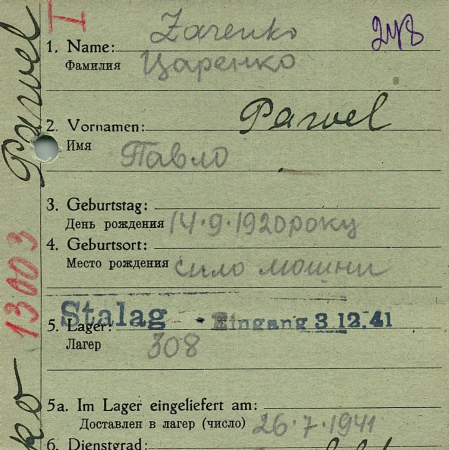 I
248
Zarenko
1. Name:
Фамилия Царенко
2. Vornamen: Pawel
Имя Павло
3. Geburtstag:
День рождения 14.9.1920 року
4. Geburtsort:
Место рождения сило мошни
Stalag Eingang 3.12.41
5. Lager:
Лагер 308
5a. Im Lager eingeliefert am:
Доставлен в лагер (число) 26.7.1941
6. Dienstgrad:
Pawel
13003
ko